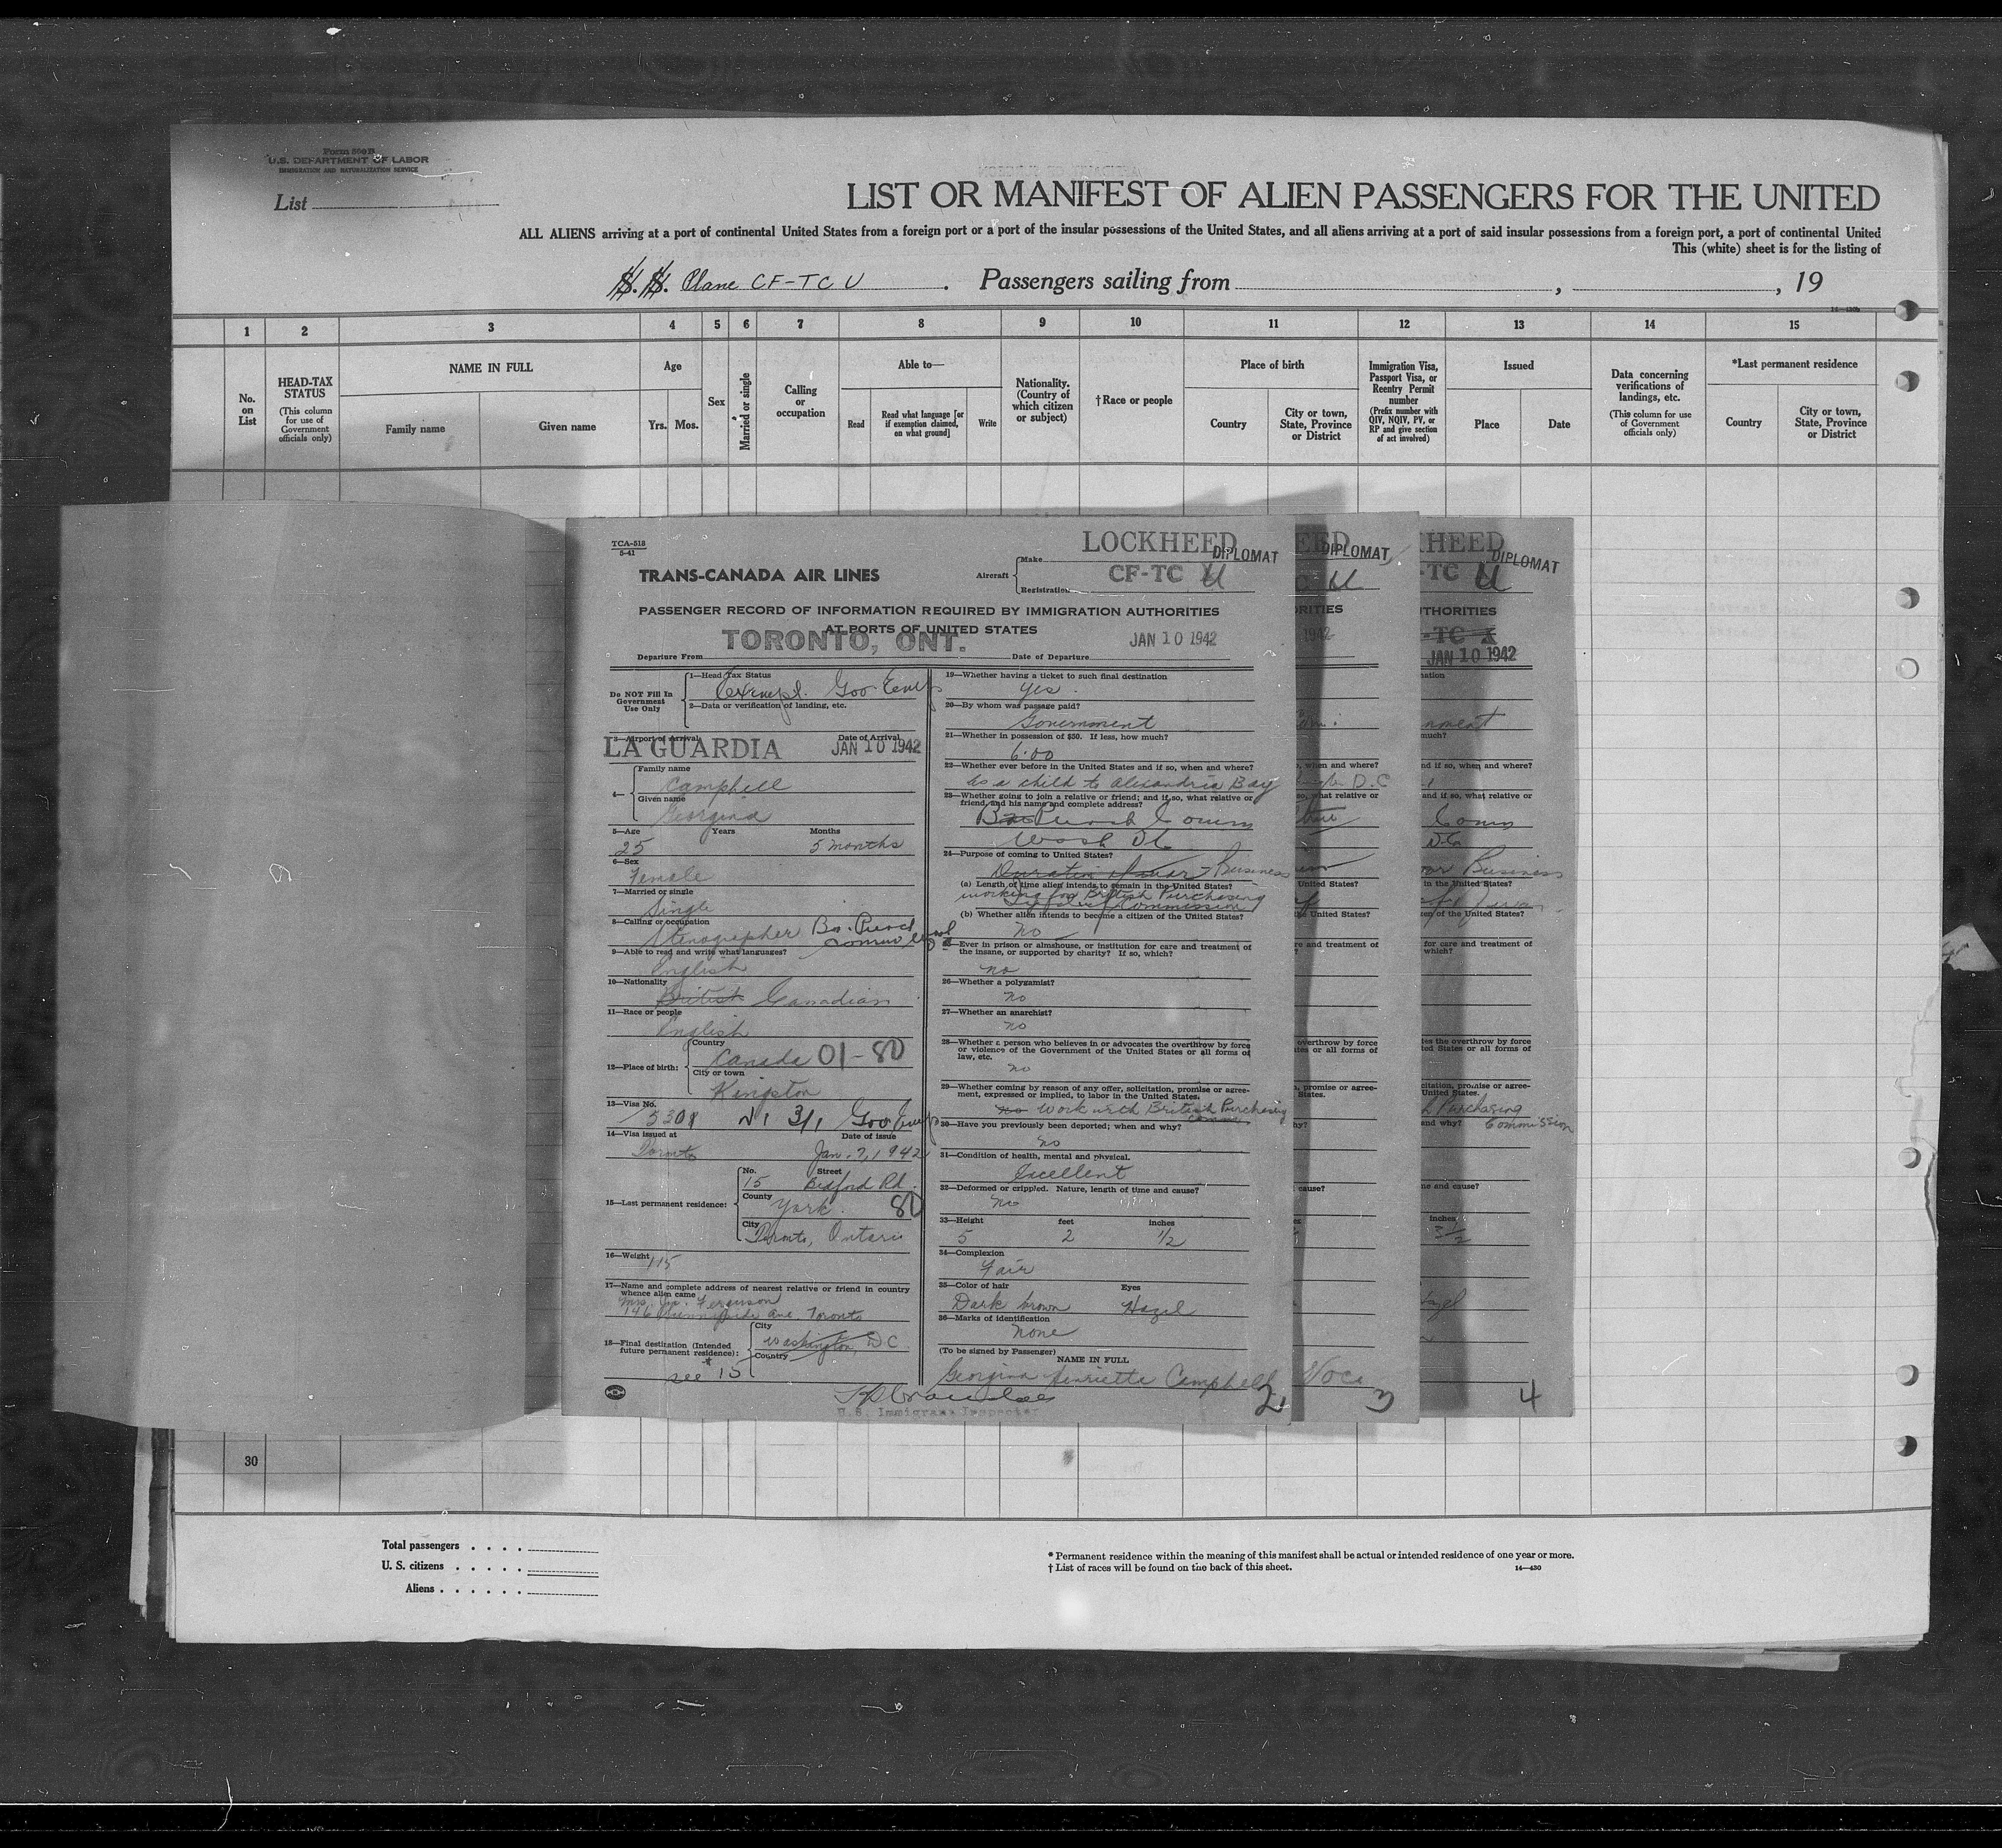 Form 500 B
U.S. DEPARTMENT OF LABOR
IMMIGRATION AND NATURALIZATION SERVICE
List
LIST OR MANIFEST OF ALIEN PASSENGERS FOR THE UNITED
ALL ALIENS arriving at a port of continental United States from a foreign port or a port of the insular possessions of the United States, and all aliens arriving at a port of said insular possessions from a foreign port, a port of continental United
This (white) sheet is for the listing of
S. S. Plane CF-TCU. Passengers sailing from , , 19
1 2 3 4 5 6 7 8 9 10 11 12 13 14 15
No. on List
HEAD-TAX STATUS
(This column for use of Government officials only)
NAME IN FULL
Family name Given name
Age
Yrs. Mos.
Sex
Married or single
Calling or occupation
Able to—
Read
Read what language [or if exemption claimed, on what ground]
Write
Nationality. (Country of which citizen or subject)
†Race or people
Place of birth
Country
City or town, State, Province or District
Immigration Visa, Passport Visa, or Reentry Permit number
(Prefix number with QIV, NQIV, PV, or RP and give section of act involved)
Issued
Place Date
Data concerning verifications of landings, etc.
(This column for use of Government officials only)
*Last permanent residence
Country
City or town, State, Province or District
TCA-518
5-41
TRANS-CANADA AIR LINES
Aircraft
Make LOCKHEED
DIPLOMAT
Registration CF-TC U
PASSENGER RECORD OF INFORMATION REQUIRED BY IMMIGRATION AUTHORITIES
AT PORTS OF UNITED STATES
Departure From TORONTO, ONT. Date of Departure JAN 10 1942
Do NOT Fill In
Government
Use Only
1—Head Tax Status
Exempt. Gov. Emp
2—Data or verification of landing, etc.
3—Airport of Arrival Date of Arrival
LA GUARDIA JAN 10 1942
4—
Family name
Campbell
Given name
Georgina
5—Age Years Months
25 5 months
6—Sex
Female
7—Married or single
Single
8—Calling or occupation
Stenographer
9—Able to read and write what languages?
English
10—Nationality
British Canadian
11—Race or people
English
12—Place of birth:
Country
Canada 01-80
City or town
Kingston
13—Visa No.
3/1 Gov Emp
14—Visa issued at Date of issue
Toronto Jan. 7, 1942
15—Last permanent residence:
No. Street
15 Bedford Rd.
County
York. 80
City
Toronto, Ontario
16—Weight
115
17—Name and complete address of nearest relative or friend in country
whence alien came
Mrs. Ferguson
146 Sunnyside Ave Toronto
18—Final destination (Intended
future permanent residence):
City
Washington, DC
Country
see 15
19—Whether having a ticket to such final destination
yes.
20—By whom was passage paid?
Government
21—Whether in possession of $50. If less, how much?
6.00
22—Whether ever before in the United States and if so, when and where?
As a child to Alexandria Bay
23—Whether going to join a relative or friend; and if so, what relative or
friend, and his name and complete address?
Comm
Wash DC
24—Purpose of coming to United States?
Business
(a) Length of time alien intends to remain in the United States?
working for British Purchasing
Commission
(b) Whether alien intends to become a citizen of the United States?
no
25—Ever in prison or almshouse, or institution for care and treatment of
the insane, or supported by charity? If so, which?
no
26—Whether a polygamist?
no
27—Whether an anarchist?
no
28—Whether a person who believes in or advocates the overthrow by force
or violence of the Government of the United States or all forms of
law, etc.
no
29—Whether coming by reason of any offer, solicitation, promise or agree-
ment, expressed or implied, to labor in the United States.
no Work with British Purchasing
30—Have you previously been deported; when and why?
no
31—Condition of health, mental and physical.
Excellent
32—Deformed or crippled. Nature, length of time and cause?
no
33—Height feet inches
5 2 1/2
34—Complexion
Fair
35—Color of hair Eyes
Dark brown Hazel
36—Marks of identification
none
(To be signed by Passenger)
NAME IN FULL
Georgina Henriette Campbell
2
U.S. Immigrant Inspector
DIPLOMAT
U
3
DIPLOMAT
U
JAN 10 1942
Business
Purchasing
Commission
4
30
Total passengers
U. S. citizens
Aliens
* Permanent residence within the meaning of this manifest shall be actual or intended residence of one year or more.
† List of races will be found on the back of this sheet.
14—430